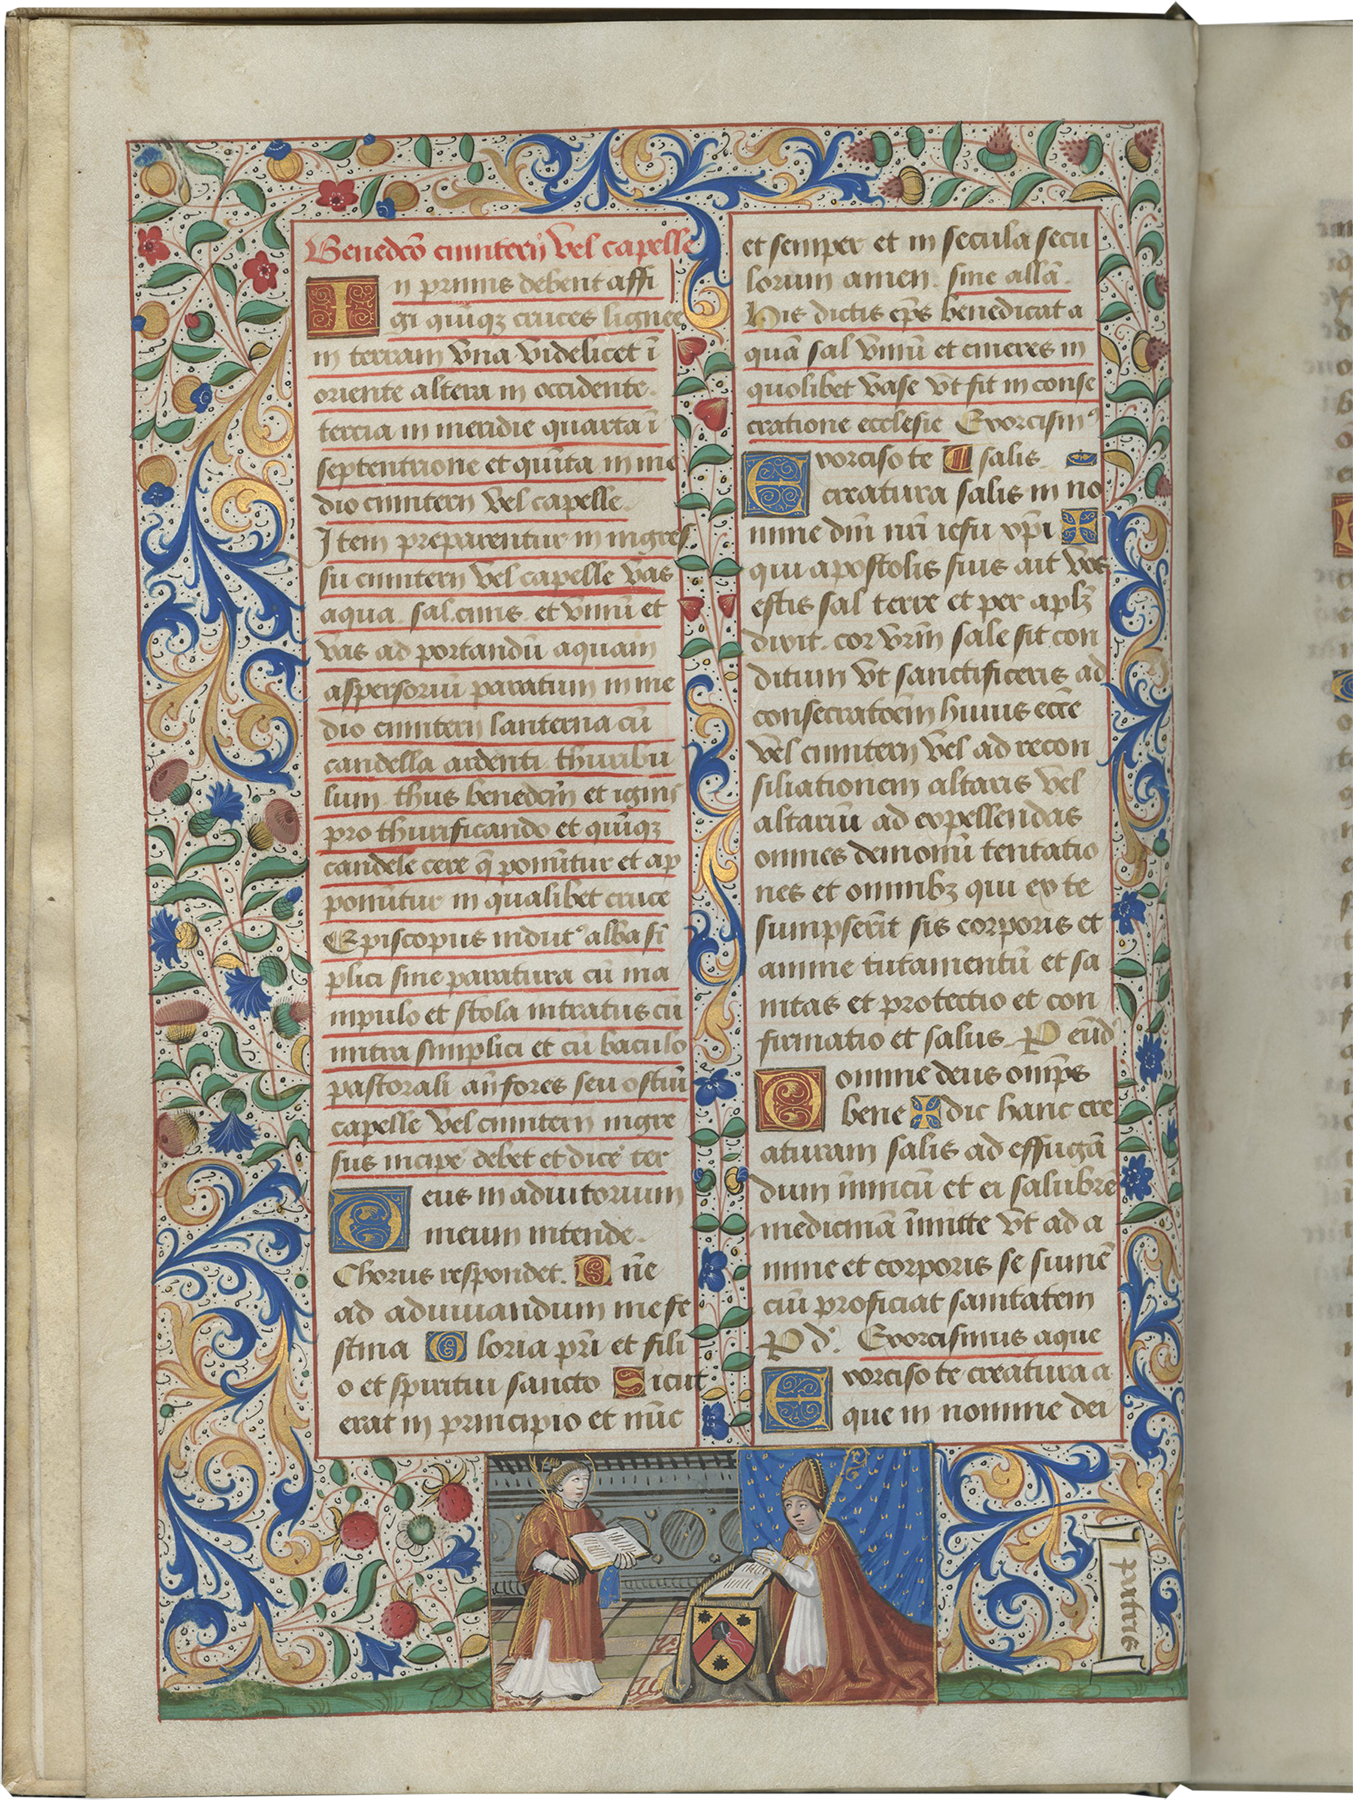 Benedcō cimiterij vel capelle
In primis debent affi
gi quīqz cruces lignee
in terram vna videlicet ī
oriente altera in occidente.
tercia in meridie quarta ī
septentrione et quīta in me
dio cimiterij vel capelle.
Item preparentur in ingres
su cimiterij vel capelle vas
aqua. sal. cinis. et vinū et
vas ad portandū aquam
aspersoriū paratum in me
dio cimiterij lanterna cū
candella ardenti. thuribu
lum. thus benedcm̄ et ignis
pro thurificando et quīqz
candele cere q̄ ponūtur et ap
ponūtur in qualibet cruce
Episcopus indutꝰ alba si
plici sine paratura cū ma
nipulo et stola intratus cū
mitra simplici et cū baculo
pastorali an̄ fores seu ostiū
capelle vel cimiterij ingre
sus incipe debet et dicē ter
Deus in adiutorium
meum intende.
Chorus respondet. D n̄e
ad adiuuandum me fe
stina Gloria pr̄i et fili
o et spiritui sancto Sicut
erat in principio et nūc
et semper et in secula secu
lorum amen. sine allā.
His dictis ep̄s benedicat a
quā sal vinū et cineres in
quolibet vase vt fit in conse
cratione ecclesie Exorcismꝰ
Exorciso te salis.
creatura salis in no
mine dn̄i nr̄i iesu xp̄i ✠
qui apostolis suis ait vos
estis sal terre et per aplz̄
dixit. cor vr̄m sale sit con
ditum vt sanctificeris ad
consecratōem huius eccē
vel cimiterij vel ad recon
siliationem altaris vel
altariū ad expellendas
omnes demonū tentatio
nes et omnibz qui ex te
sumpserīt sis corporis et
anime tutamentū et sa
nitas et protectio et con
firmatio et salus. P eūd
Domine deus omp̄s
bene ✠ dic hanc cre
aturam salis ad effugā
dum inimicū et ei salubrē
medicinā īmitte vt ad a
nime et corporis se sumē
ciū proficiat sanitatem
P d. Exorcismus aque
Exorciso te creatura a
que in nomine dei